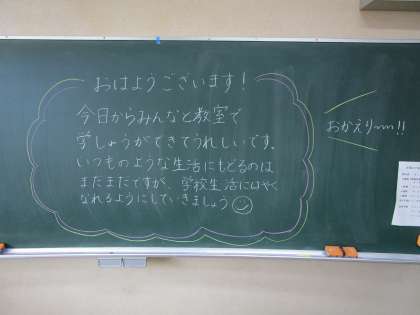 おはようございます!
今日からみんなと教室で
学しゅうができてうれしいです。
いつものような生活にもどるのは
まだまだですが、学校生活にはやく
なれるようにしていきましょう
おかえり〜〜!!